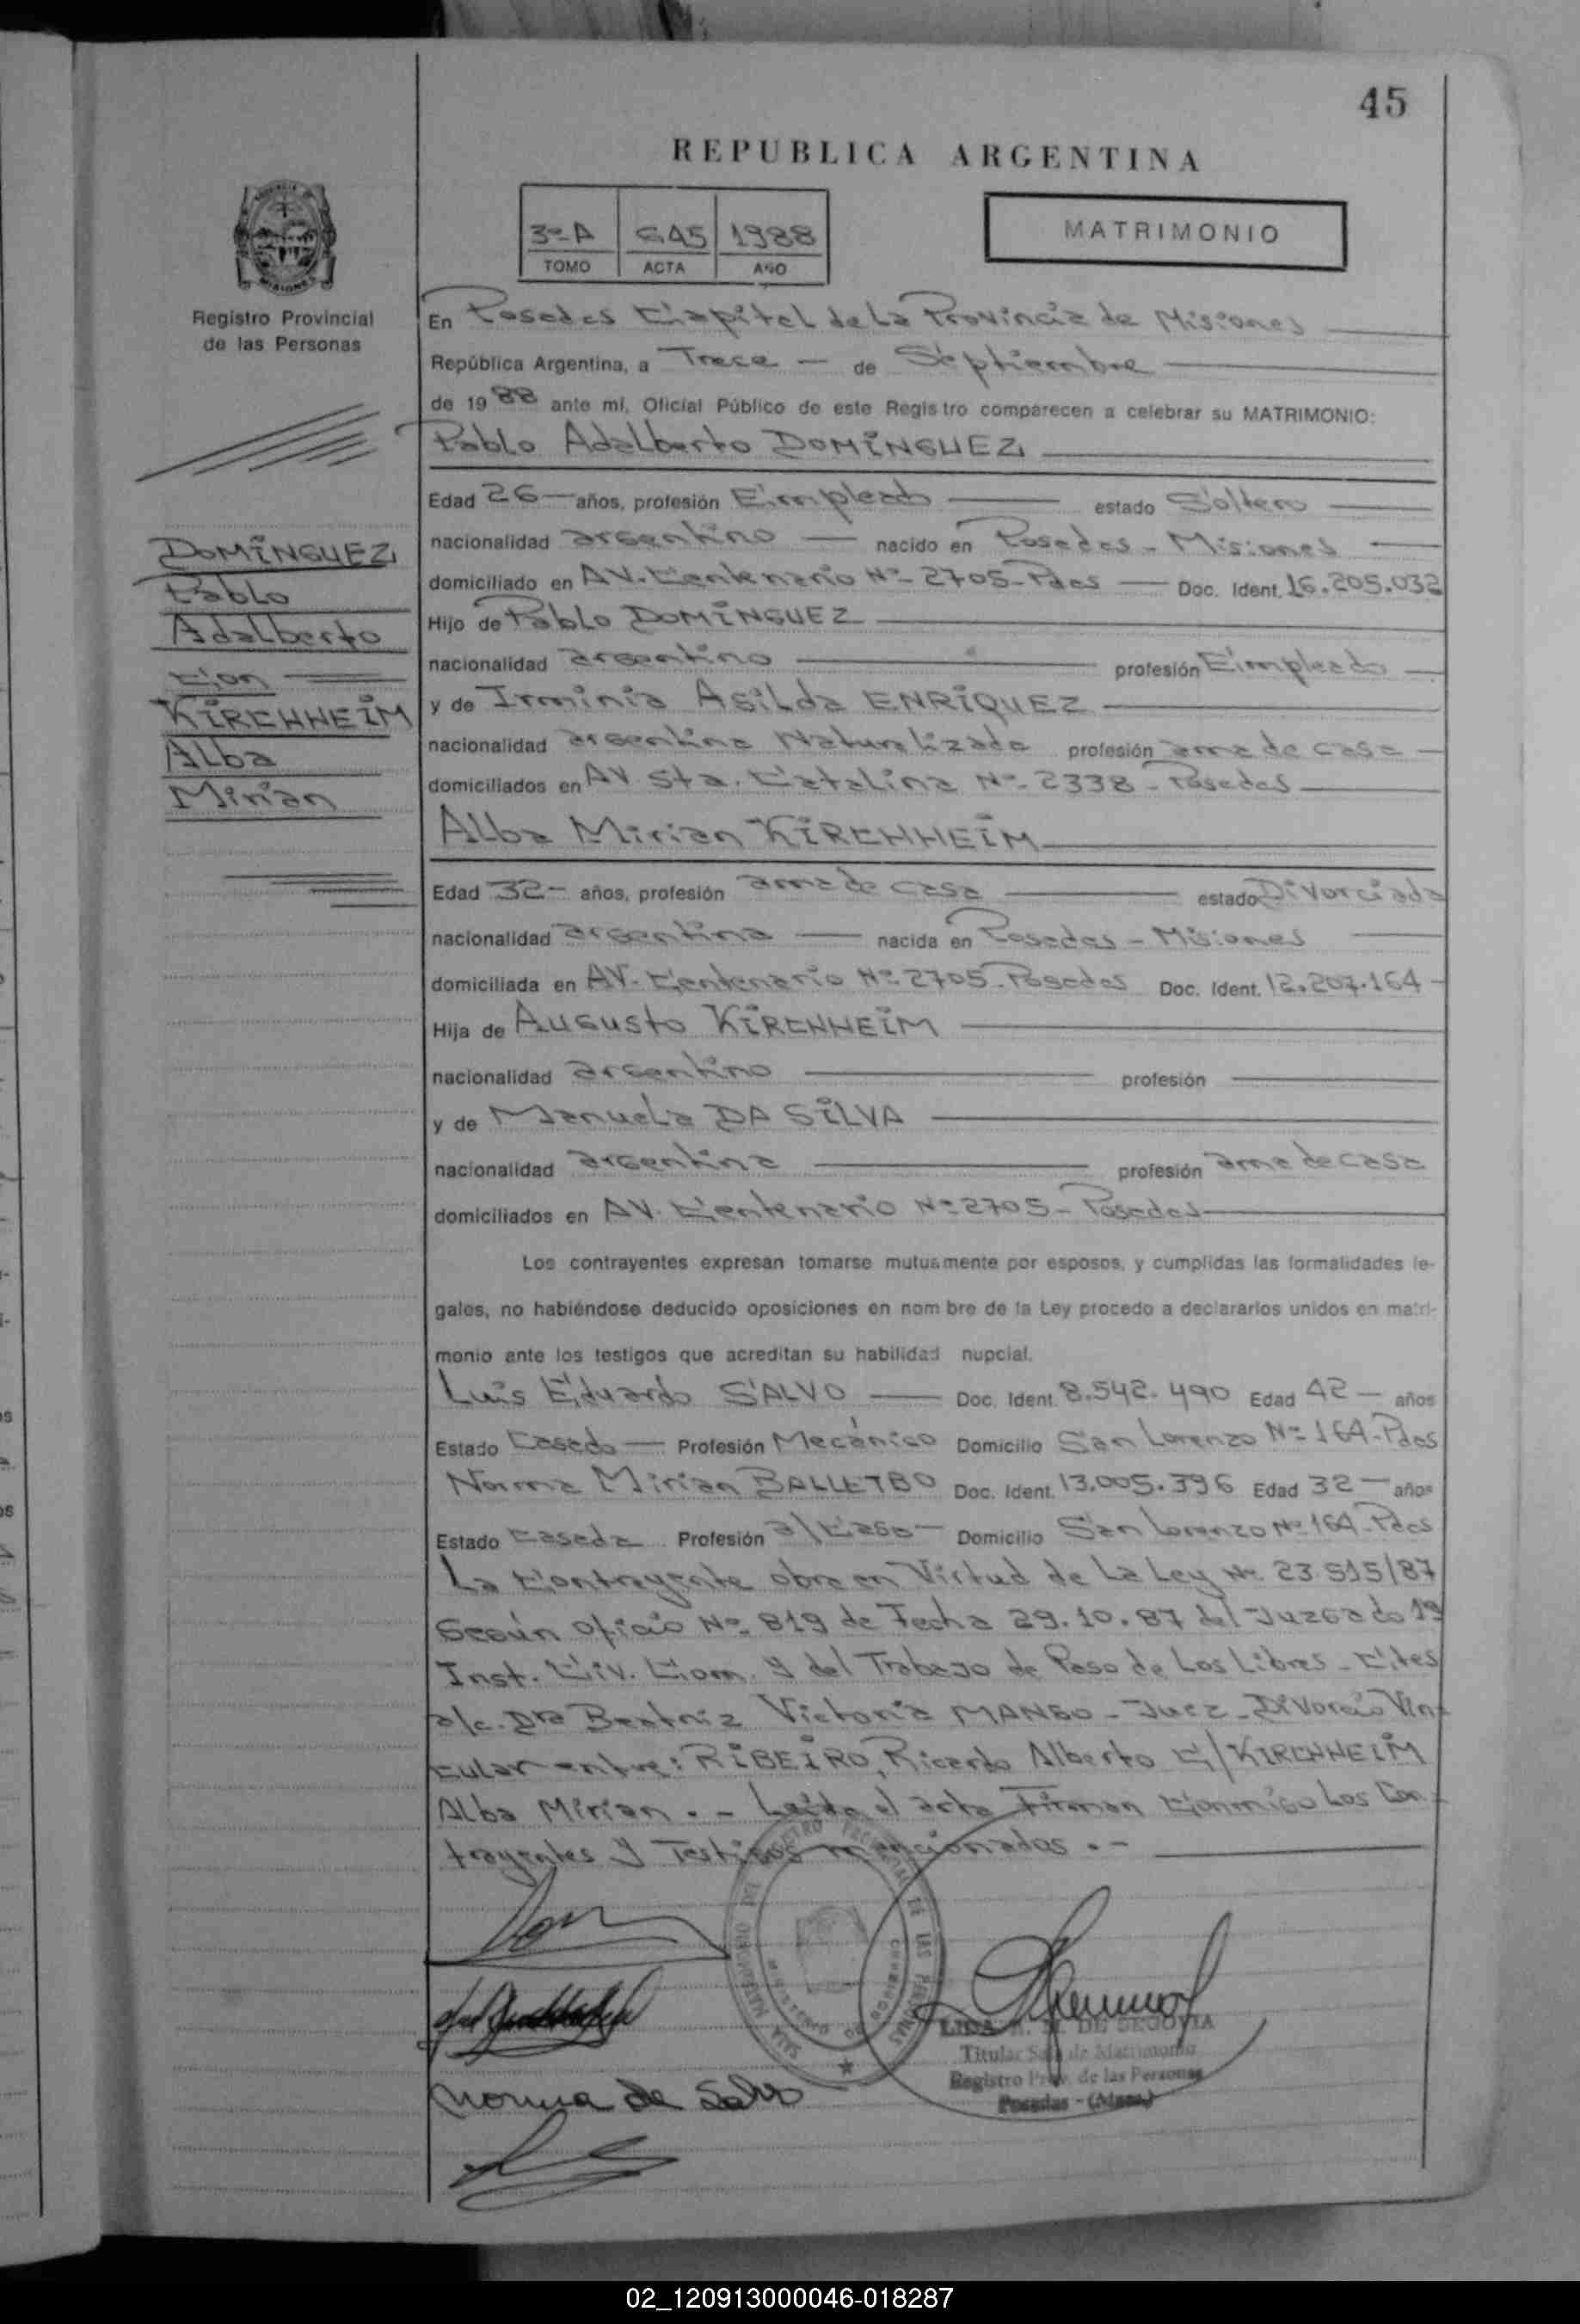 45
REPUBLICA ARGENTINA
3º-A 645 1988
TOMO ACTA AÑO
MATRIMONIO
Registro Provincial
de las Personas
DOMÍNGUEZ
Pablo
Adalberto
Con
KIRCHHEIM
Alba
Mirian
En Posadas Capital de La Provincia de Misiones
República Argentina, a Trece — de Septiembre
de 1988 ante mí, Oficial Público de este Registro comparecen a celebrar su MATRIMONIO:
Pablo Adalberto DOMÍNGUEZ
Edad 26 — años, profesión Empleado estado Soltero
nacionalidad argentino — nacido en Posadas - Misiones
domiciliado en AV. Centenario Nº- 2705- Pdas — Doc. Ident. 16.205.032
Hijo de Pablo DOMÍNGUEZ
nacionalidad argentino profesión Empleado
y de Irminia Asilda ENRÍQUEZ
nacionalidad argentina Naturalizada profesión ama de casa
domiciliados en AV Sta. Catalina Nº- 2338 - Posadas
Alba Mirian KIRCHHEIM
Edad 32- años, profesión ama de casa estado Divorciada
nacionalidad argentina — nacida en Posadas - Misiones
domiciliada en AV. Centenario Nº 2705- Posadas Doc. Ident. 12.207.164
Hija de Augusto KIRCHHEIM
nacionalidad argentino profesión
y de Manuela DA SILVA
nacionalidad argentina profesión ama de casa
domiciliados en AV. Centenario Nº 2705- Posadas
Los contrayentes expresan tomarse mutuamente por esposos, y cumplidas las formalidades le-
gales, no habiéndose deducido oposiciones en nombre de la Ley procedo a declararlos unidos en matri-
monio ante los testigos que acreditan su habilidad nupcial.
Luis Eduardo SALVO — Doc. Ident. 8.542.490 Edad 42 — años
Estado Casado — Profesión Mecánico Domicilio San Lorenzo Nº 164-Pdas
Norma Mirian BALLETBO Doc. Ident. 13.005.396 Edad 32 — años
Estado Casada Profesión a/Casa- Domicilio San Lorenzo Nº 164-Pdas
La Contrayente obra en Virtud de La Ley Nº 23.515/87
Según Oficio Nº- 819 de Fecha 29.10.87 del Juzgado 1º
Inst. Civ. Com. y del Trabajo de Paso de Los Libres - Ctes
a/c. Dra Beatriz Victoria - Juez - Divorcio Vin-
cular entre: RIBEIRO, Ricardo Alberto C/ KIRCHHEIM
Alba Mirian . - Leída el acta Firman Conmigo Los Con-
trayentes y Testigos mencionados . -
Norma de Salvo
M. DE SEGOVIA
Titular Sala de Matrimonio
Registro Prov. de las Personas
Posadas - (Mnes.)
02_120913000046-018287